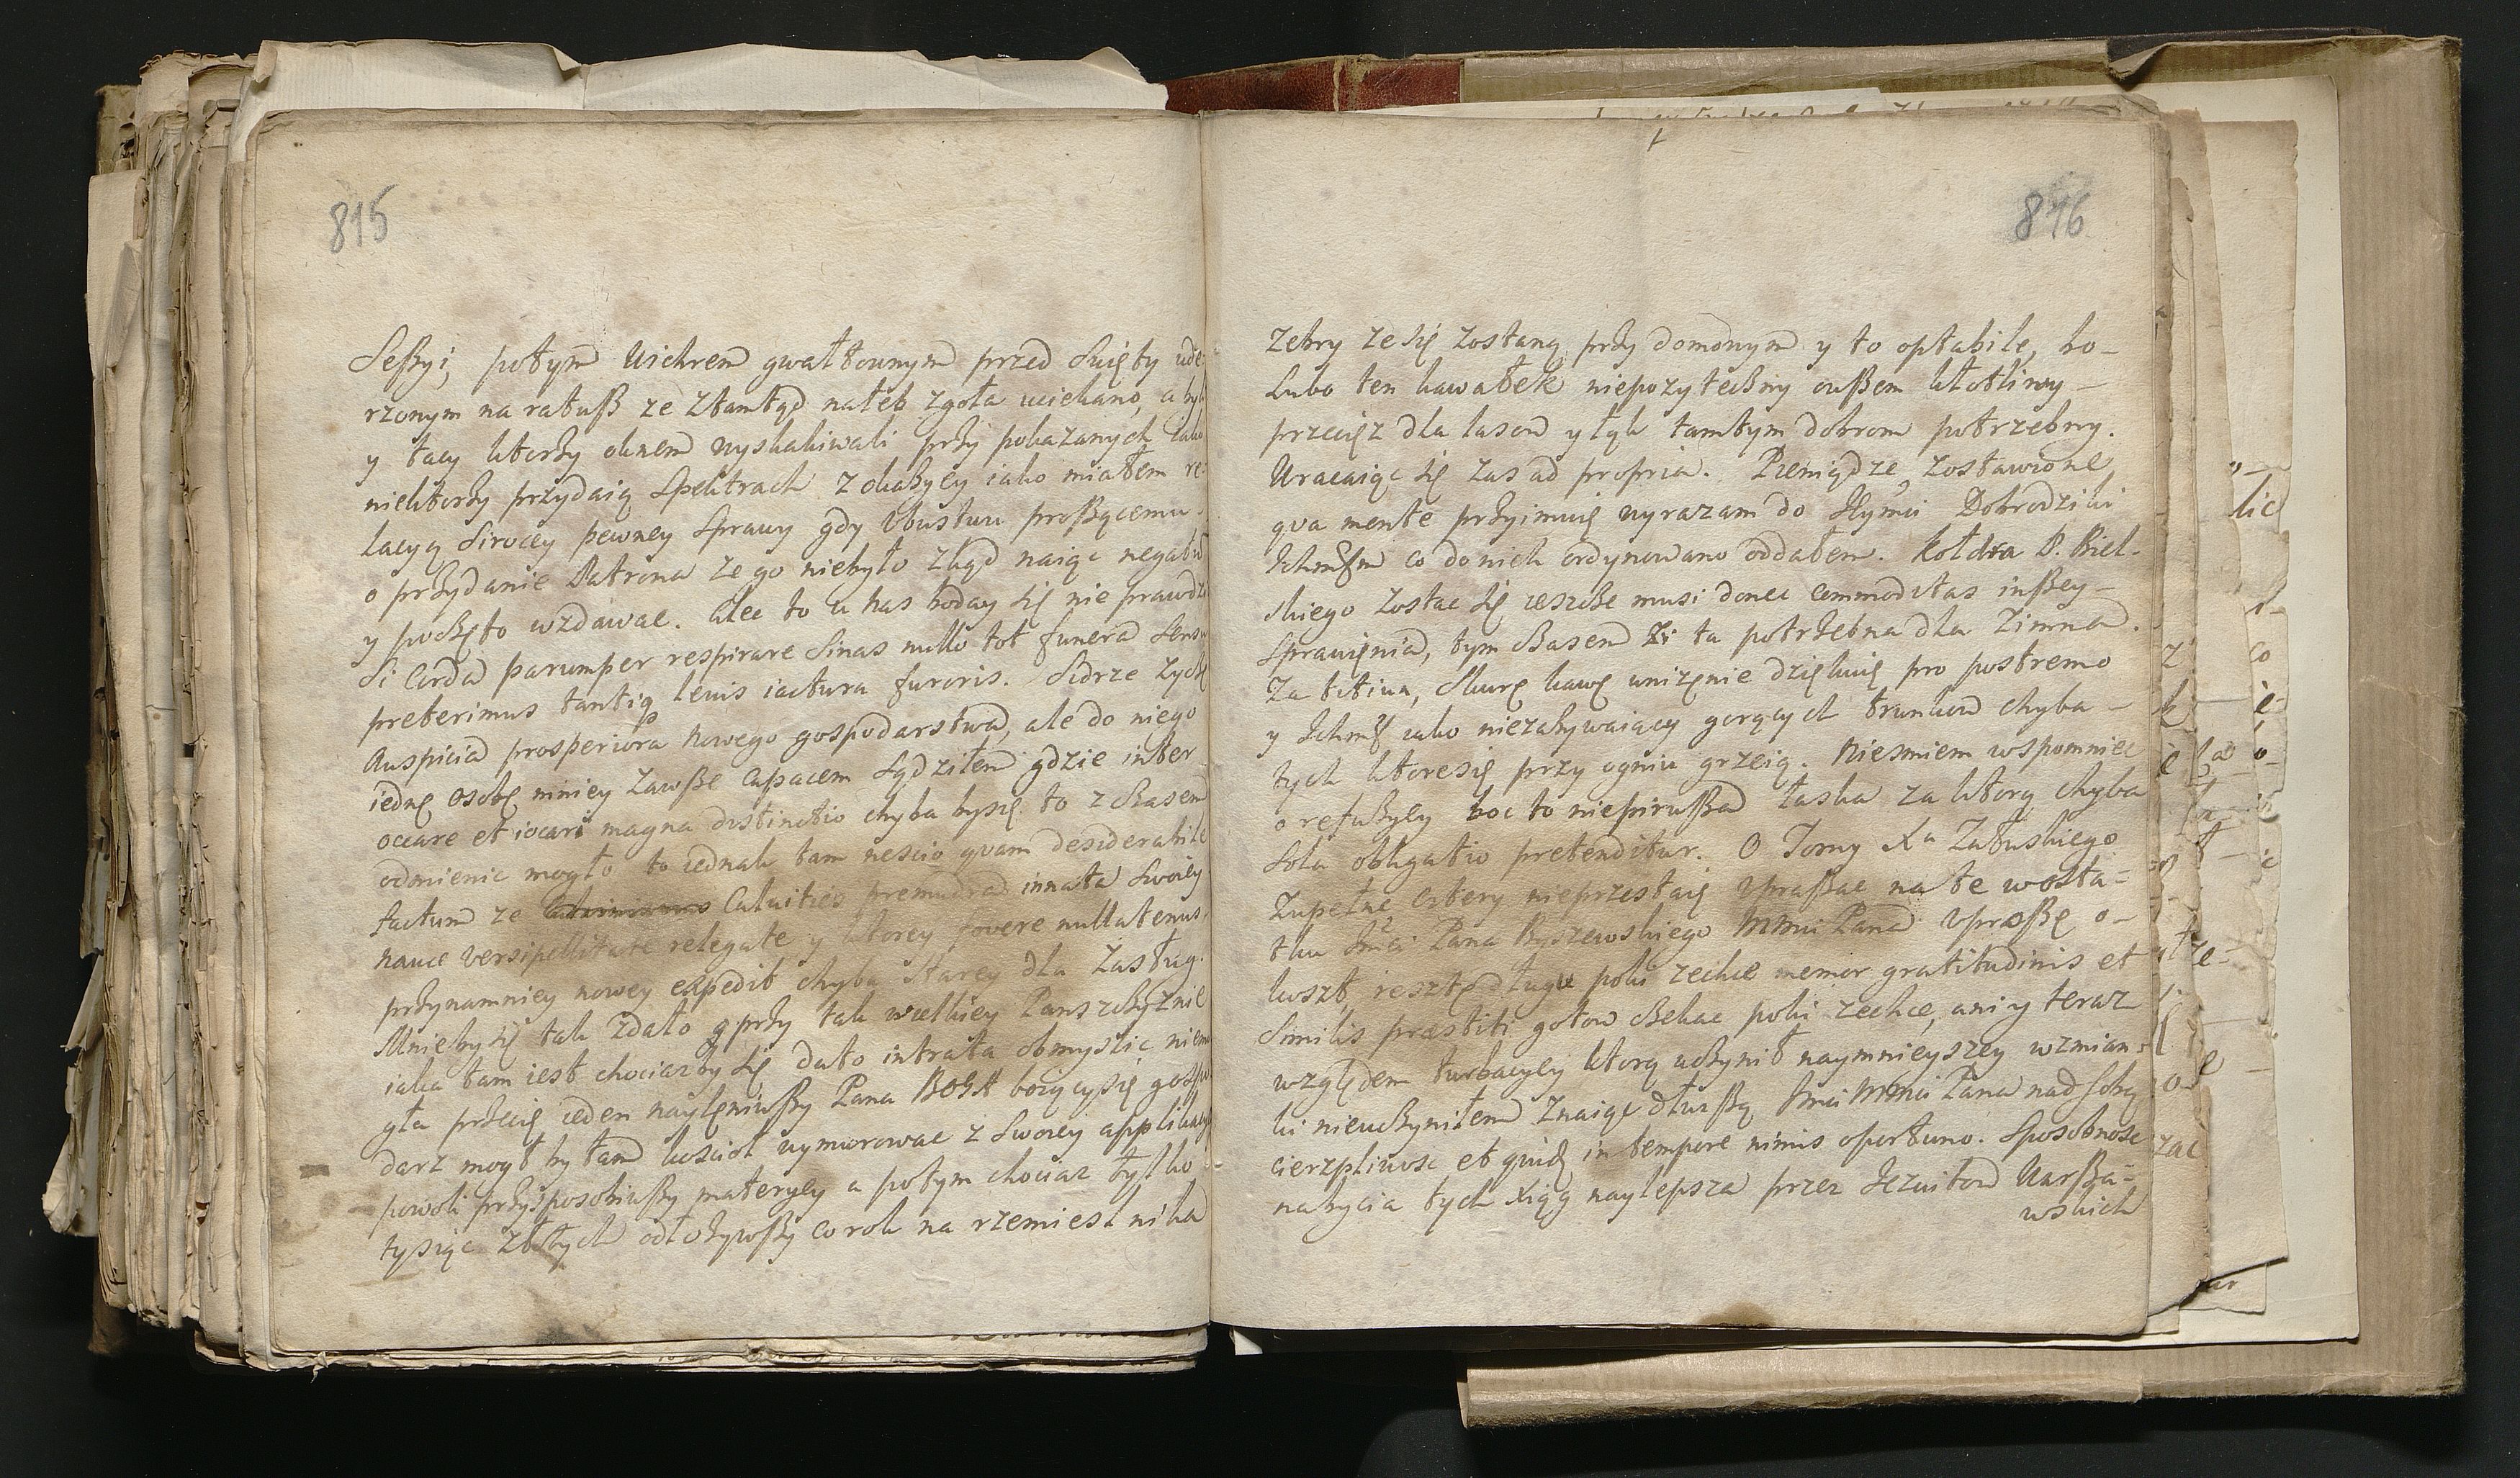 815
Seßyi, potym wichrem gwałtownym przed Swięty ude
rzonym na ratuß ze ztamtąd na łeb zgoła uciekano, a byli
y tacy ktorzy oknem wyskakiwali przy pokazanych iako
niektorzy przydaią Spektrach z okaßyey iako miałem re-
lacyą Sirocey pewney Sprawy gdy Vbustwu proßącemu
o przydanie Patrona ze go niebyło zkąd naiąc negatum
y poczęto wzdawac. Alec to u nas boday się nie prawdzi
Si Corda parumper respirare Sinas nullo tot funera Sensu
preterimus tantiq levis iactura furoris. Sidrze zyczę
Auspicia prosperiora nowego gospodarstwa, ale do niego
iednę osobę mniey zawße capacem Sądziłem gdzie inter
occare et iocari magna distinctio chyba bysię to z czasem
odmienic mogło to iednak tam nescio quam desiderabile
factum ze Calvities premudra innata Swoiey
nauce versipellitate relegate y ktorey fovere nullatenus
przynamniey nowey expedit chyba Starey dla zasług.
Mnieby się tak zdało q przy tak wielkiey Panszczyznie
iaka tam iest chociazby się dało intrata obmyslic niemo
gła przecię ieden nayleniwßy Pana BOGA boiący się gospo
darz mogł by tam koscioł wymurowac z Swoiey applikacyi
powoli przysposobiwßy materyey a potym chociaz tylko
tysiąc złłtych odłożywßy co rok na rzemieslnika
816
zebry ze się zostaną przy domonym y to optabile, bo-
Lubo ten kawałek niepozyteczny owßem kłotliwy -
przecięz dla lasow y łąk tamtym dobrom potrzebny.
Wracaiąc się zas ad propria. Pieniądze, zostawione
qva mente przyimuię wyrazam do Samei Dobrodziki
Ichmßm co do nich ordynowano oddałem. Kołdra P. Biel-
skiego zostac się ieszcze musi donec commoditas inßey -
Sprawienia, tym czasem ta potrzebna dla Zimna.
Za titiun, Skurę kawę unizenie dziękuię pro postremo
y Ichmß iako niezazywaiący gorących trunkow chyba -
tych ktoresię przy ogniu grzeią. Niesmiem wspomniec
o refußyey boc to niepirwßa łaska za ktorą chyba
Sola obligatio pretenditur. O Tomy Xa Załuskiego
Zupełne cztery nieprzestaię vpraßac na te wosta=
tku Jmci Pana Ryszewskiego MMci Pana vproßę o-
koszt, resztę długu poki zechce memor gratitudinis et
Similis prestiti gotow czekac poki zechce, ani y teraz
względem turbacyey ktorą uczynił naymnieyszey wzmian=
ki nieuczyniłem znaiąc dłuzßą Jmci MMci Pana nad Sobą
cierzpliwosc et quidem in tempore nimis oportuno. Sposobnosc
nabycia tych Xiąg naylepsza przez Jezuitow Warßa=
wskich